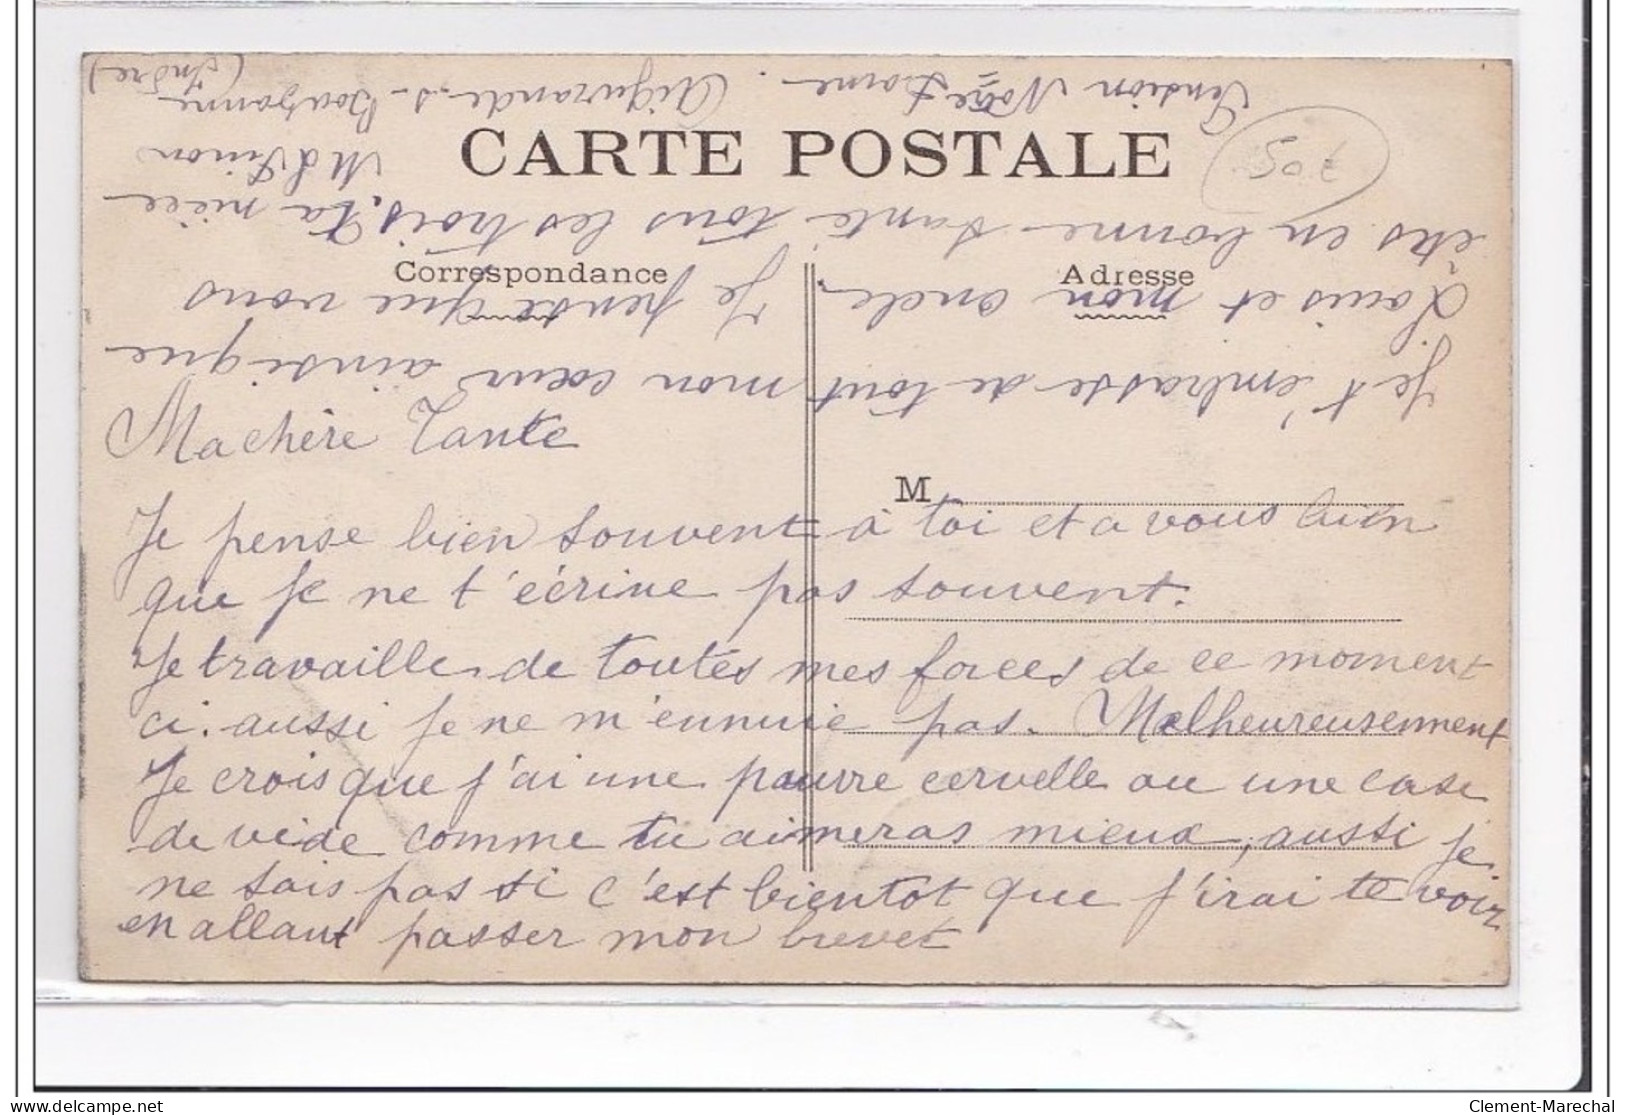 CARTE POSTALE
Correspondance
Adresse
M
Ma chère Tante
Je pense bien souvent à toi et a vous bien
que je ne t'écrive pas souvent.
Je travaille de toutes mes forces de ce moment
ci. aussi je ne m'ennuie pas. Malheureusement
Je crois que j'ai une pauvre cervelle ou une case
de vide comme tu aimeras mieux, aussi je
ne sais pas si c'est bientot que j'irai te voir
en allant passer mon brevet
Je t'embrasse de tout mon cœur ainsi que
Louis et mon oncle. Je pense que vous
êtes en bonne santé tous les trois. Ta nièce
M L Pinon
Pension Notre Dame. Aigurande-s-Bouzanne
(Indre)
705
Clement-Marechal